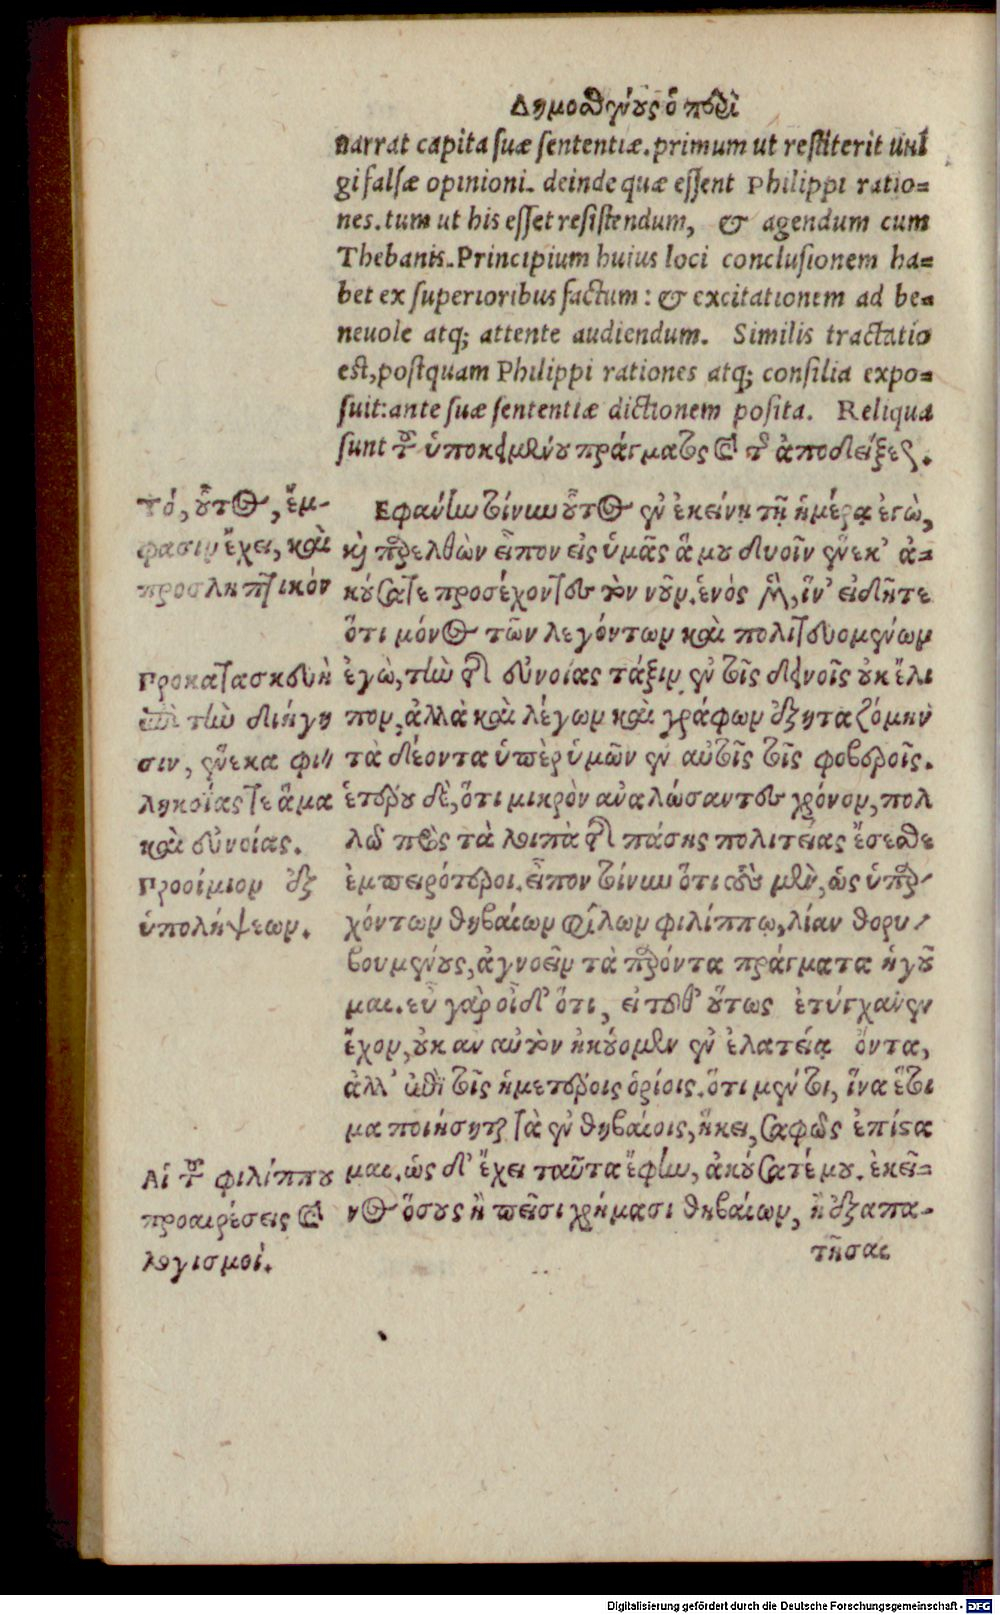 Δημοσθένους ὁ περὶ
narrat capita suæ sententiæ. primum ut restiterit uul
gi falsæ opinioni. deinde quæ essent Philippi ratio=
nes. tum ut his esset resistendum, & agendum cum
Thebanis. Principium huius loci conclusionem ha=
bet ex superioribus factum: & excitationem ad be=
neuole atq; attente audiendum. Similis tractatio
est, postquam Philippi rationes atq; consilia expo=
suit: ante suæ sententiæ dictionem posita. Reliqua
sunt τοῦ ὑποκειμένου πράγματος καὶ τῆς ἀποδείξεως.
Εφάνην τοίνυν οὗτος ἐν ἐκείνῃ τῇ ἡμέρᾳ ἐγὼ,
καὶ παρελθὼν εἶπον εἰς ὑμᾶς ἅ μου δυοῖν ἕνεκ’ ἀ=
κούσατε προσέχοντες τὸν νοῦν. ἑνὸς μὲν, ἵν’ εἰδῆτε
ὅτι μόνος τῶν λεγόντων καὶ πολιτευομένων
ἐγὼ, τὴν τῆς εὐνοίας τάξιν ἐν τοῖς δεινοῖς οὐκ ἔλι
πον, ἀλλὰ καὶ λέγων καὶ γράφων ἐξηταζόμην
τὰ δέοντα ὑπὲρ ὑμῶν ἐν αὐτοῖς τοῖς φοβεροῖς.
ἑτέρου δὲ, ὅτι μικρὸν ἀναλώσαντες χρόνον, πολ
λῷ πρὸς τὰ λοιπὰ τῆς πάσης πολιτείας ἔσεσθε
ἐμπειρότεροι. εἶπον τοίνυν ὅτι τοὺς μὲν, ὡς ὑπαρ-
χόντων θηβαίων φίλων φιλίππῳ, λίαν θορυ-
βουμένους, ἀγνοεῖν τὰ παρόντα πράγματα ἡγοῦ
μαι. εὖ γὰρ οἶδ’ ὅτι, εἰ τοῦθ’ οὕτως ἐτύγχανεν
ἔχον, οὐκ ἂν αὐτὸν ἠκούομεν ἐν ἐλατείᾳ ὄντα,
ἀλλ’ ἐπὶ τοῖς ἡμετέροις ὁρίοις. ὅτι μέντοι, ἵνα ἕτοι
μα ποιήσηται τὰ ἐν θηβαίοις, ἥκει, σαφῶς ἐπίστα
μαι. ὡς δ’ ἔχει ταῦτα ἔφην, ἀκούσατέ μου. ἐκεῖ=
νος ὅσους ἢ πεῖσι χρήμασι θηβαίων, ἢ ἐξαπα-
τῆσαι
τό, οὗτος, ἔμ-
φασιν ἔχει, καὶ
προσληπτικόν
Προκατασκευὴ
ἐπὶ τὴν διήγη
σιν, ἕνεκα φι-
ληκοίας τε ἅμα
καὶ εὐνοίας.
Προοίμιον ἐξ
ὑπολήψεων.
Αἱ τοῦ φιλίππου
προαιρέσεις καὶ
λογισμοί.
Digitalisierung gefördert durch die Deutsche Forschungsgemeinschaft - DFG